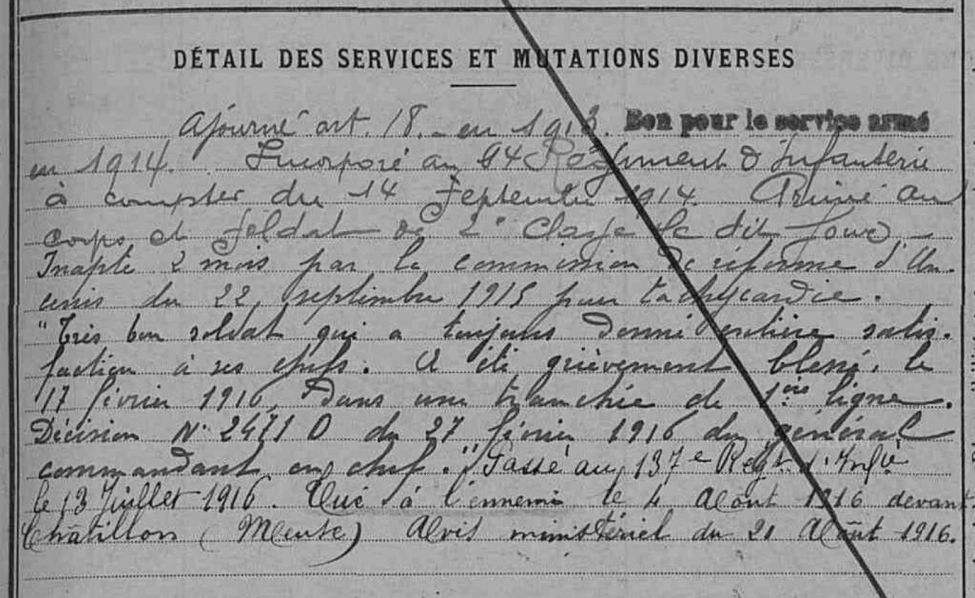 DÉTAIL DES SERVICES ET MUTATIONS DIVERSES
Ajourné art. 18. - en 1913. Bon pour le service armé
en 1914. Incorporé au 64 Régiment d'Infanterie
à compter du 14 Septembre 1914. Arrivé au
corps et soldat de 2e Classe le dit jour -
Inapte 2 mois par la commission de réforme d'An-
cenis du 22 septembre 1915 pour tachycardie.
"Très bon soldat qui a toujours donné entière satis-
faction à ses chefs. A été grièvement blessé, le
17 février 1916, dans une tranchée de 1ère ligne.
Décision N° 2471 D du 27 février 1916 du général
commandant en chef." Passé au 137e Régt. d'Infie
le 13 Juillet 1916. Tué à l'ennemi le 4 Août 1916 devant
Châtillon (Meuse) Avis ministériel du 21 Août 1916.